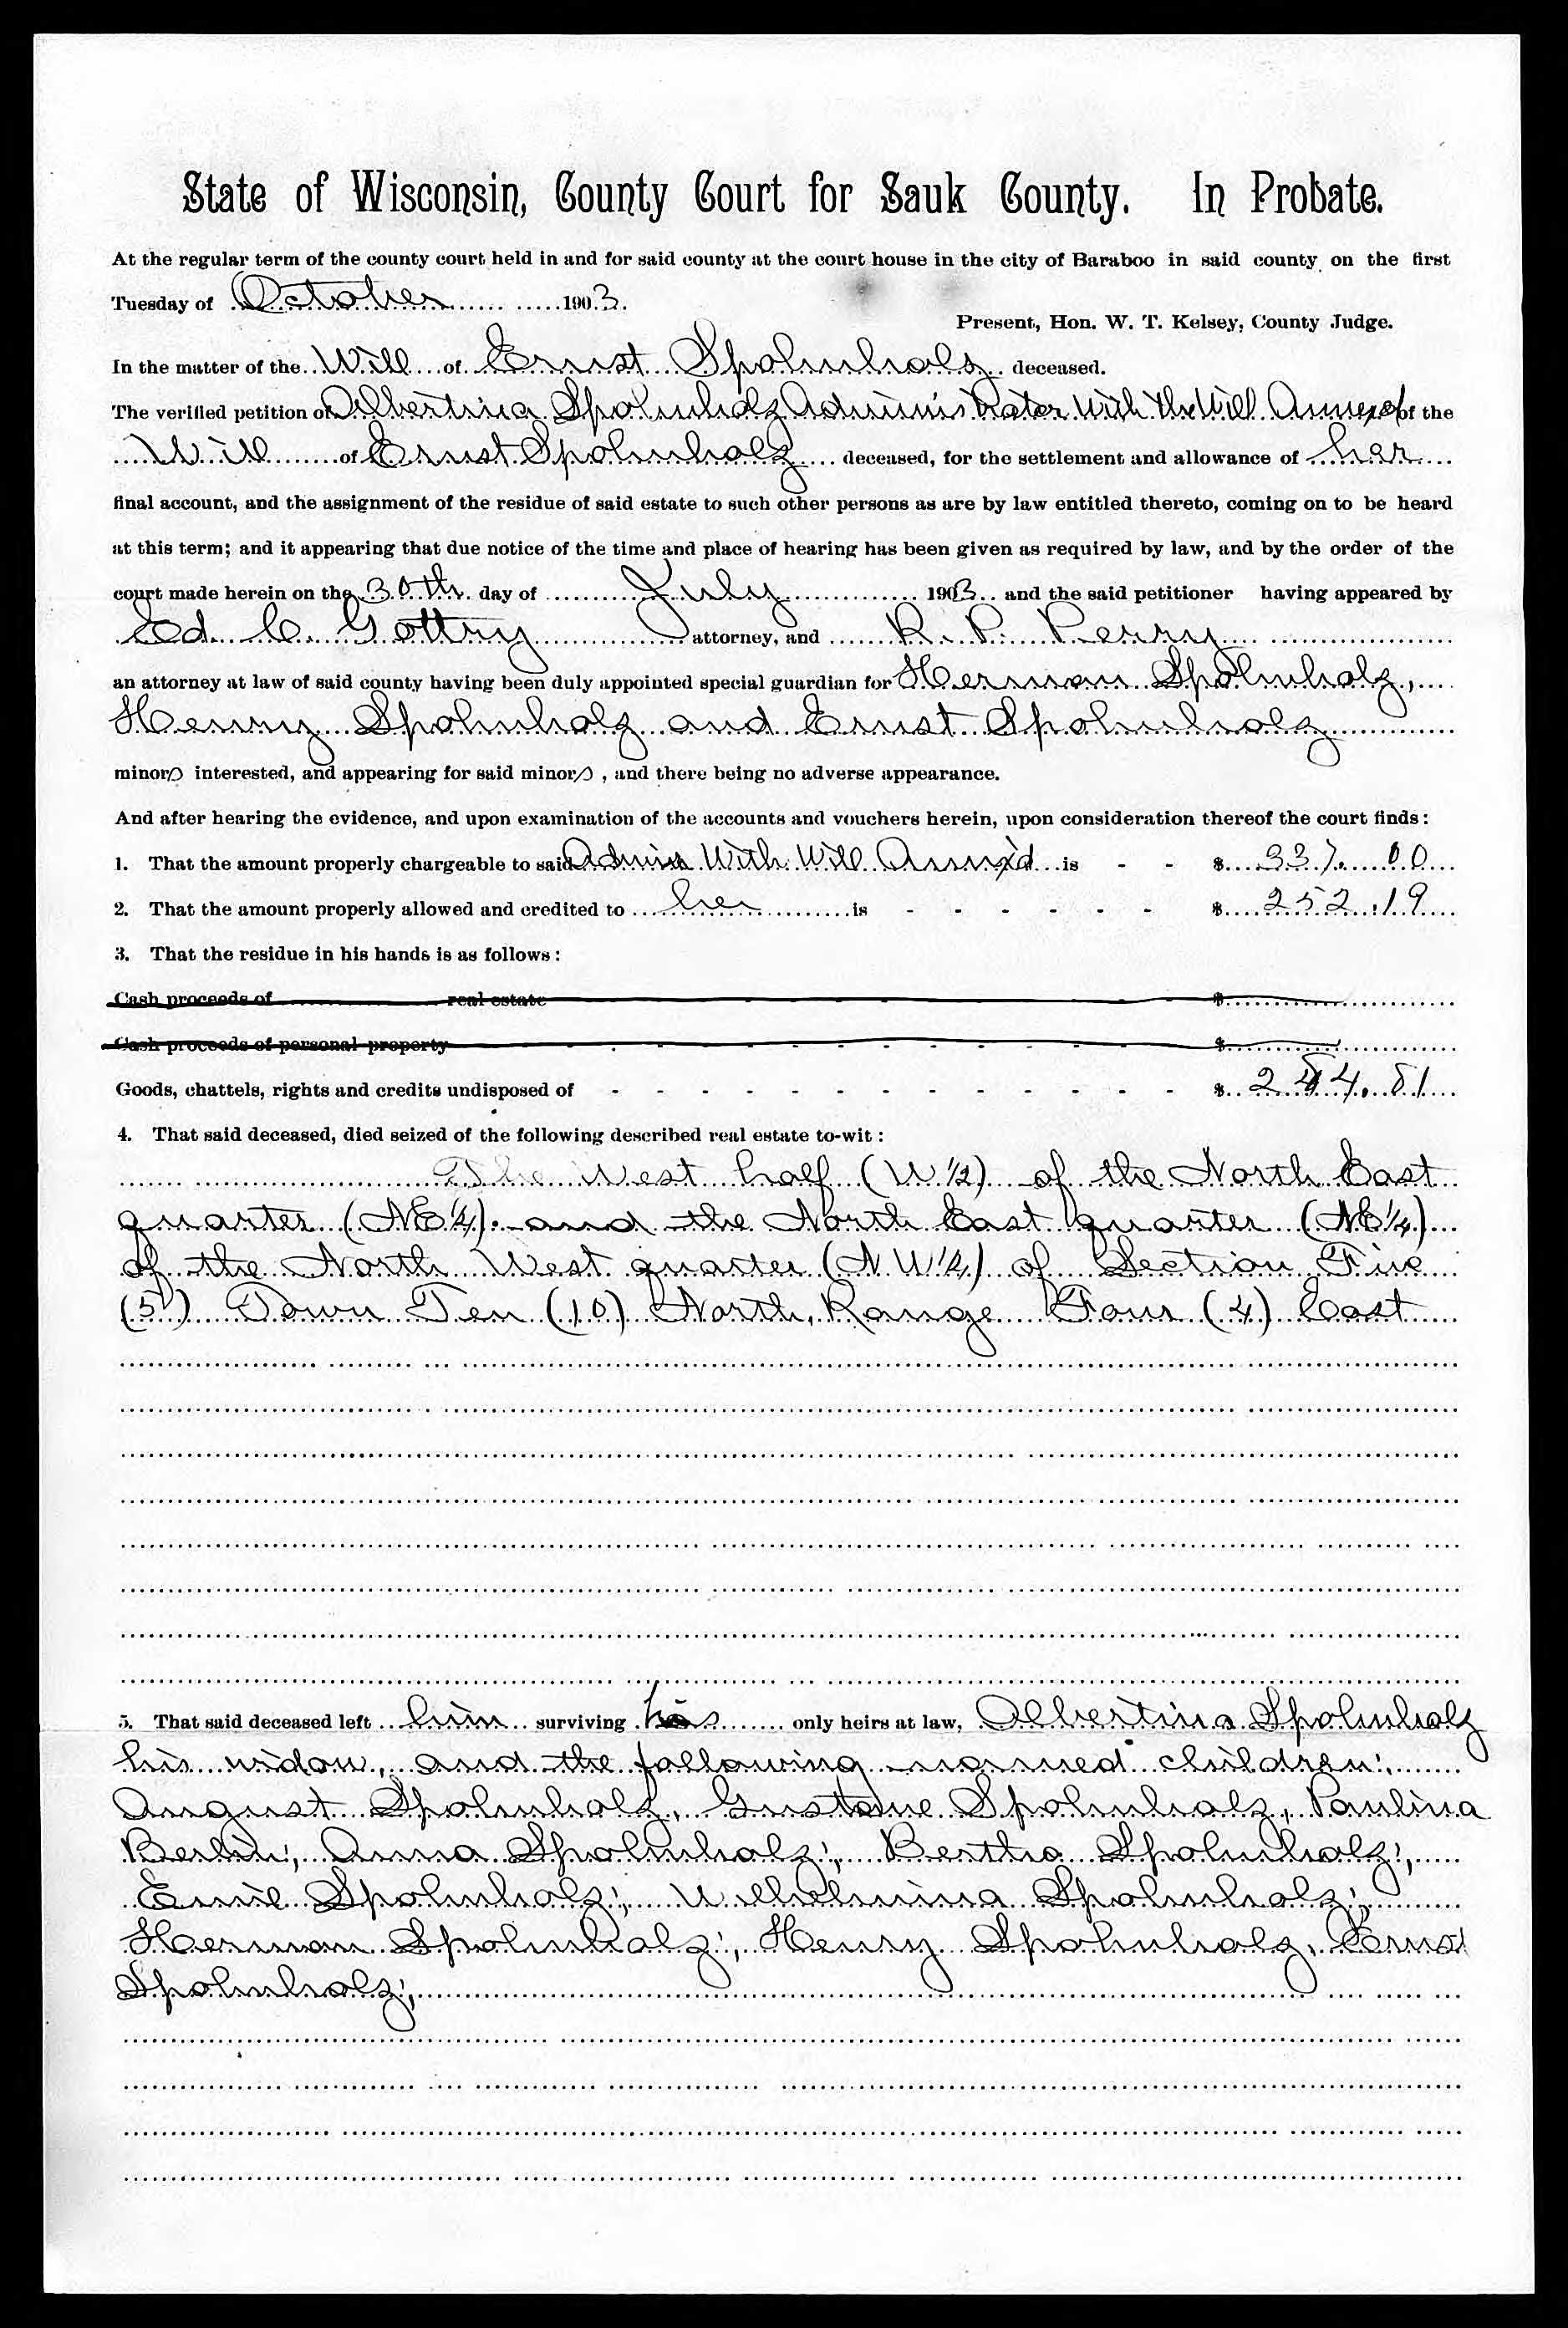 State of Wisconsin, County Court for Sauk County. In Probate.
At the regular term of the county court held in and for said county at the court house in the city of Baraboo in said county on the first
Tuesday of October 1903.
Present, Hon. W. T. Kelsey, County Judge.
In the matter of the Will of Ernst Spolmholz deceased.
The verified petition of Albertina Spolmholz Administrater With the Will Annexed of the
Will of Ernst Spolmholz deceased, for the settlement and allowance of her
final account, and the assignment of the residue of said estate to such other persons as are by law entitled thereto, coming on to be heard
at this term; and it appearing that due notice of the time and place of hearing has been given as required by law, and by the order of the
court made herein on the 30th day of July 1903 and the said petitioner having appeared by
Ed. C. Gottry attorney, and R. P. Perry
an attorney at law of said county having been duly appointed special guardian for Herman Spolmholz,
Henry Spolmholz and Ernst Spolmholz
minors interested, and appearing for said minors, and there being no adverse appearance.
And after hearing the evidence, and upon examination of the accounts and vouchers herein, upon consideration thereof the court finds:
1. That the amount properly chargeable to said Admin With Will Annex'd is - - $ 337.00
2. That the amount properly allowed and credited to her is - - - - - - $ 252.19
3. That the residue in his hands is as follows:
Cash proceeds of real estate $
Cash proceeds of personal property - - - - - - - - - - - - $
Goods, chattels, rights and credits undisposed of - - - - - - - - - - - - - $ 84.81
4. That said deceased, died seized of the following described real estate to-wit:
The West half (W 1/2) of the North East
quarter (NE 1/4). and the North East quarter (NE 1/4)
of the North West quarter (N W 1/4) of Section Five
(5) Town Ten (10) North, Range Four (4) East
5. That said deceased left him surviving his only heirs at law, Albertina Spolmholz
his widow, and the following named children:
August Spolmholz, Gustave Spolmholz, Paulina
Berlin; Anna Spolmholz; Bertha Spolmholz;
Emil Spolmholz; Wilhelmina Spolmholz;
Herman Spolmholz; Henry Spolmholz, Ernst
Spolmholz;